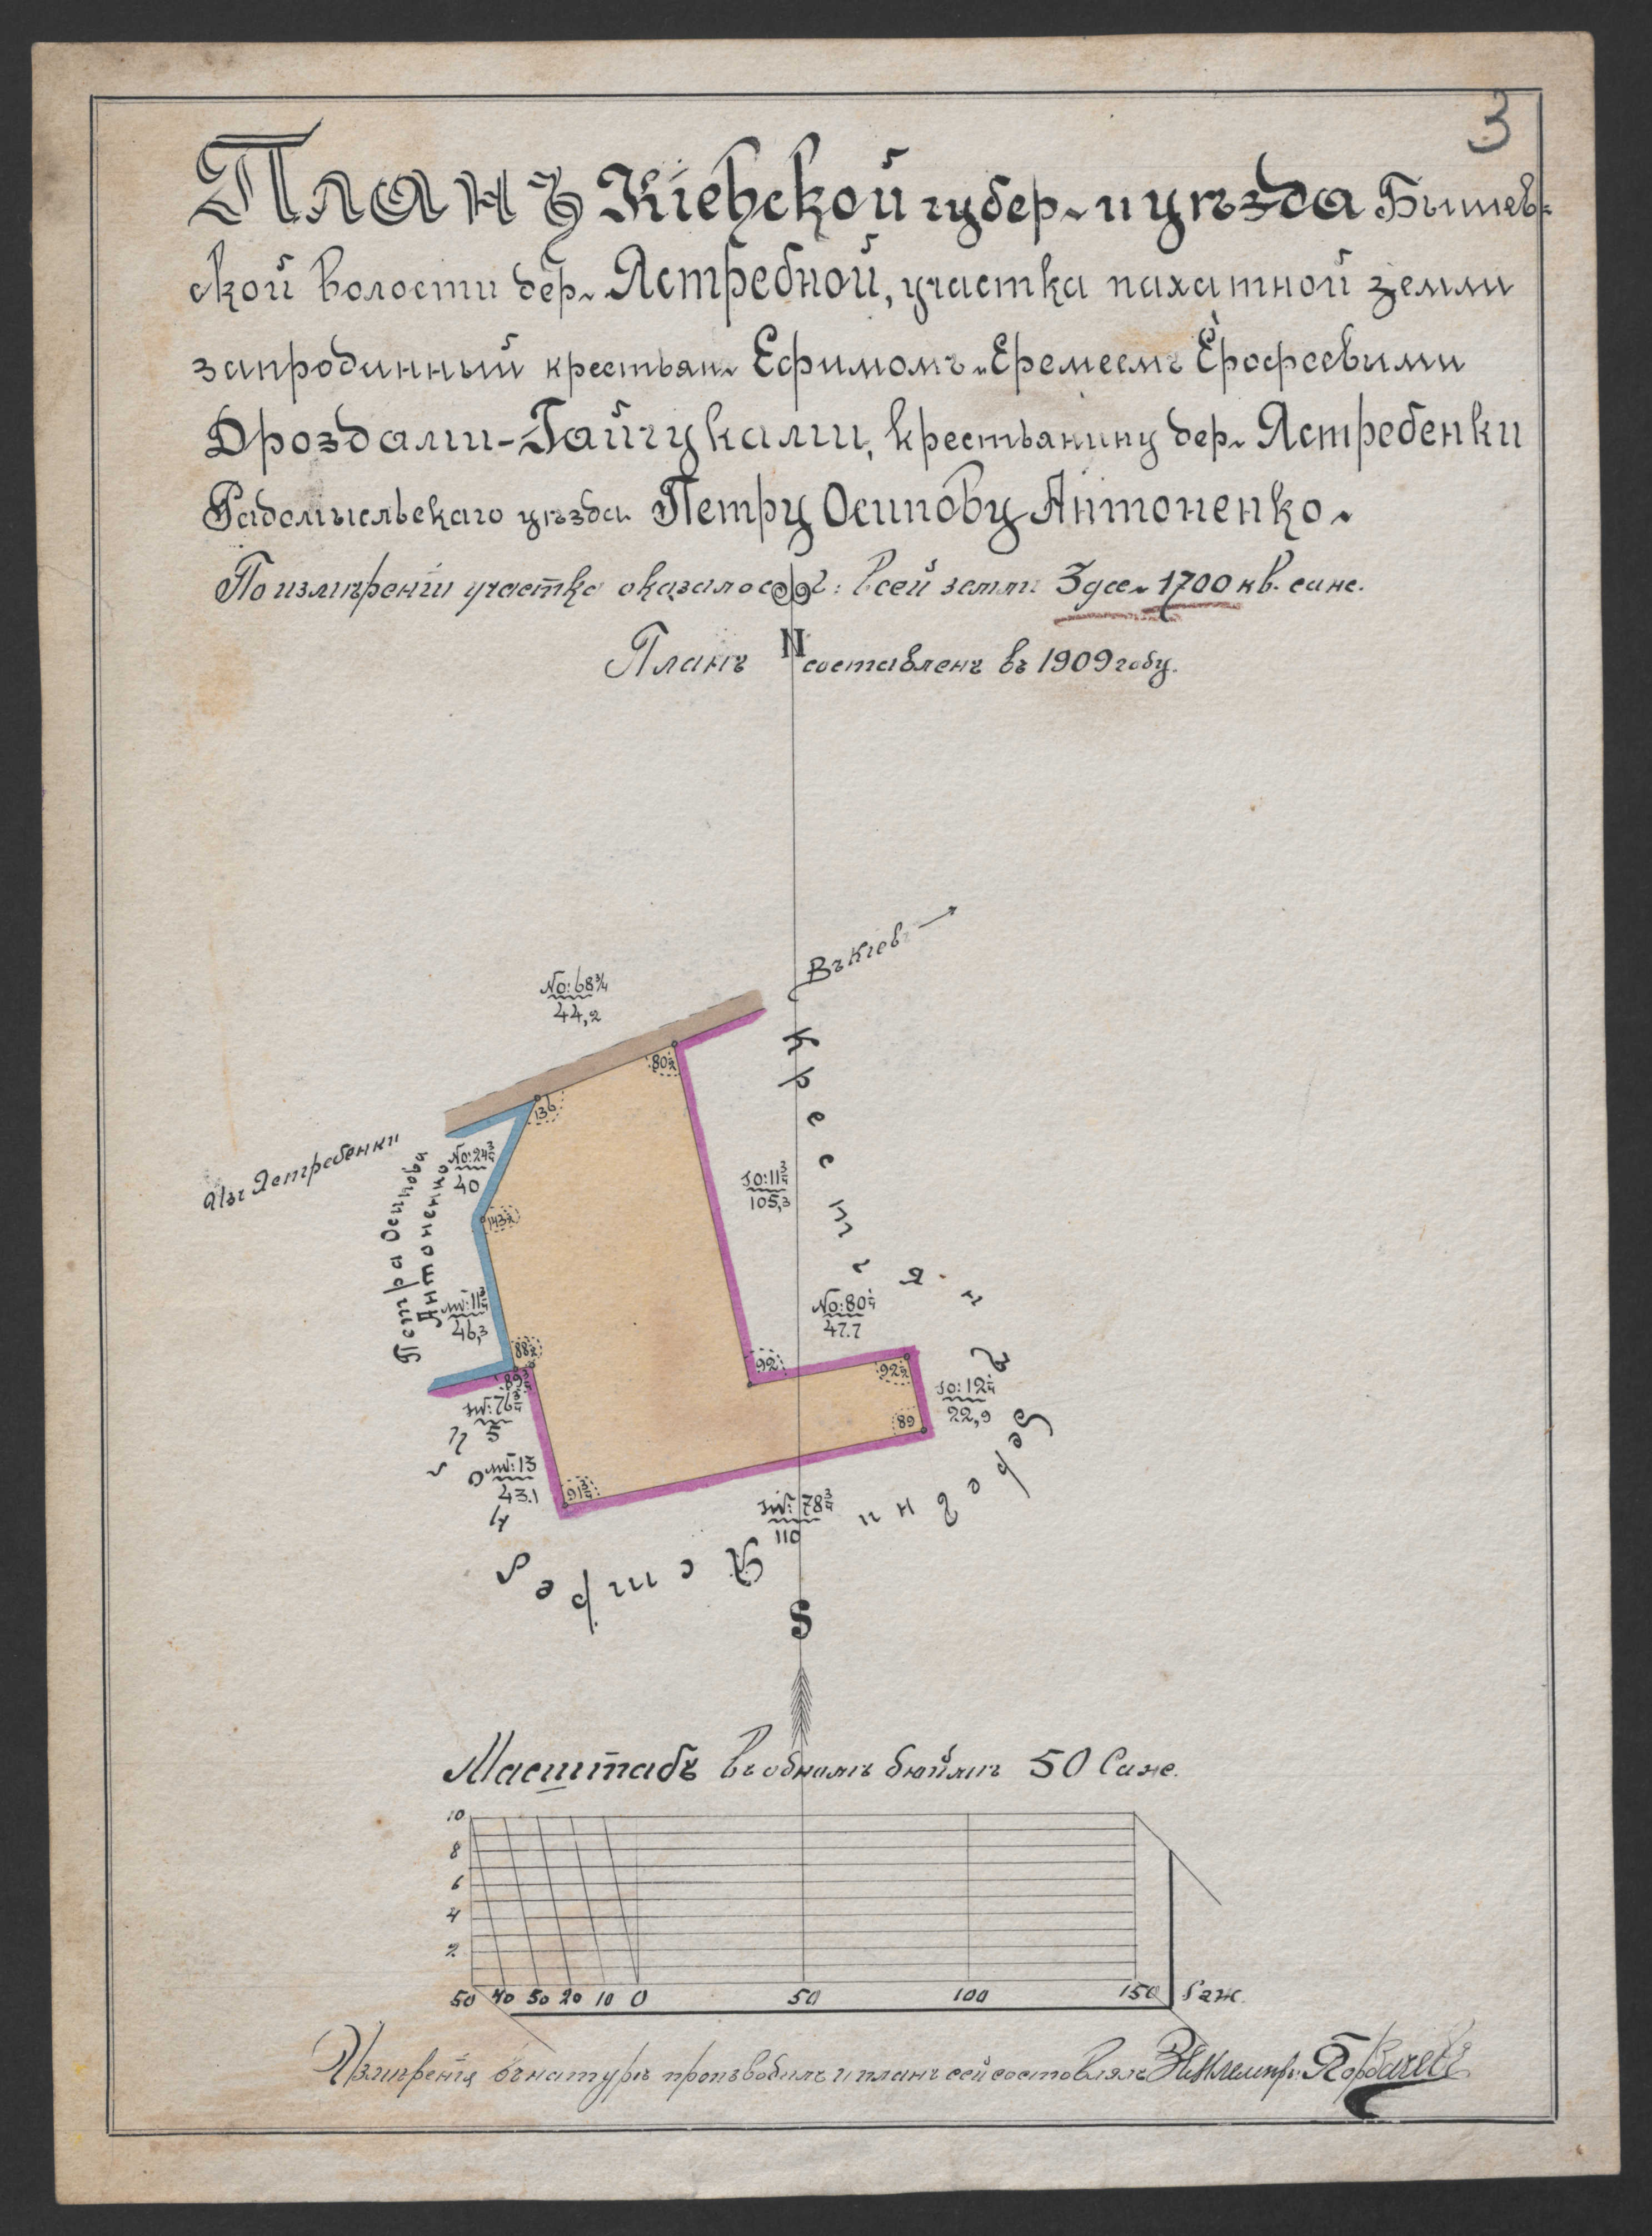 3
Планъ Кіевской губер. и уѣзда Бышев=
ской волости дер. Ястребной, участка пахатной земли
запроданный крестьян. Ефимомъ и Еремеемъ Ерофеевыми
Дроздами-Гайчуками, крестьянину дер. Ястребенки
Радомысльскаго уѣзда Петру Осипову Антоненко.
По измѣреніи участка оказалось: всей земли 3 дес. 1700 кв. саж.
Планъ составленъ въ 1909 году.
N
Въ Кіевъ
NO: 68¾
44,2
80½
136
Изъ Ястребенки
NO: 24¾
40
Петра Осипова
Антоненко
143½
SO: 11¾
105,3
NW: 11¾
46,3
NO: 80¼
47.7
88½
89¾
92
92½
SW: 76¾
5
SO: 12¼
22,9
89
NW: 13
43.1
91¾
SW: 78¾
110
Крестьянъ
деревни
Ястре
S
Масштабъ въ одномъ дюймѣ 50 Саж.
10
8
6
4
2
50 40 30 20 10 0 50 100 150 Саж.
Измѣренія въ натурѣ производилъ и планъ сей составлялъ Землемѣръ